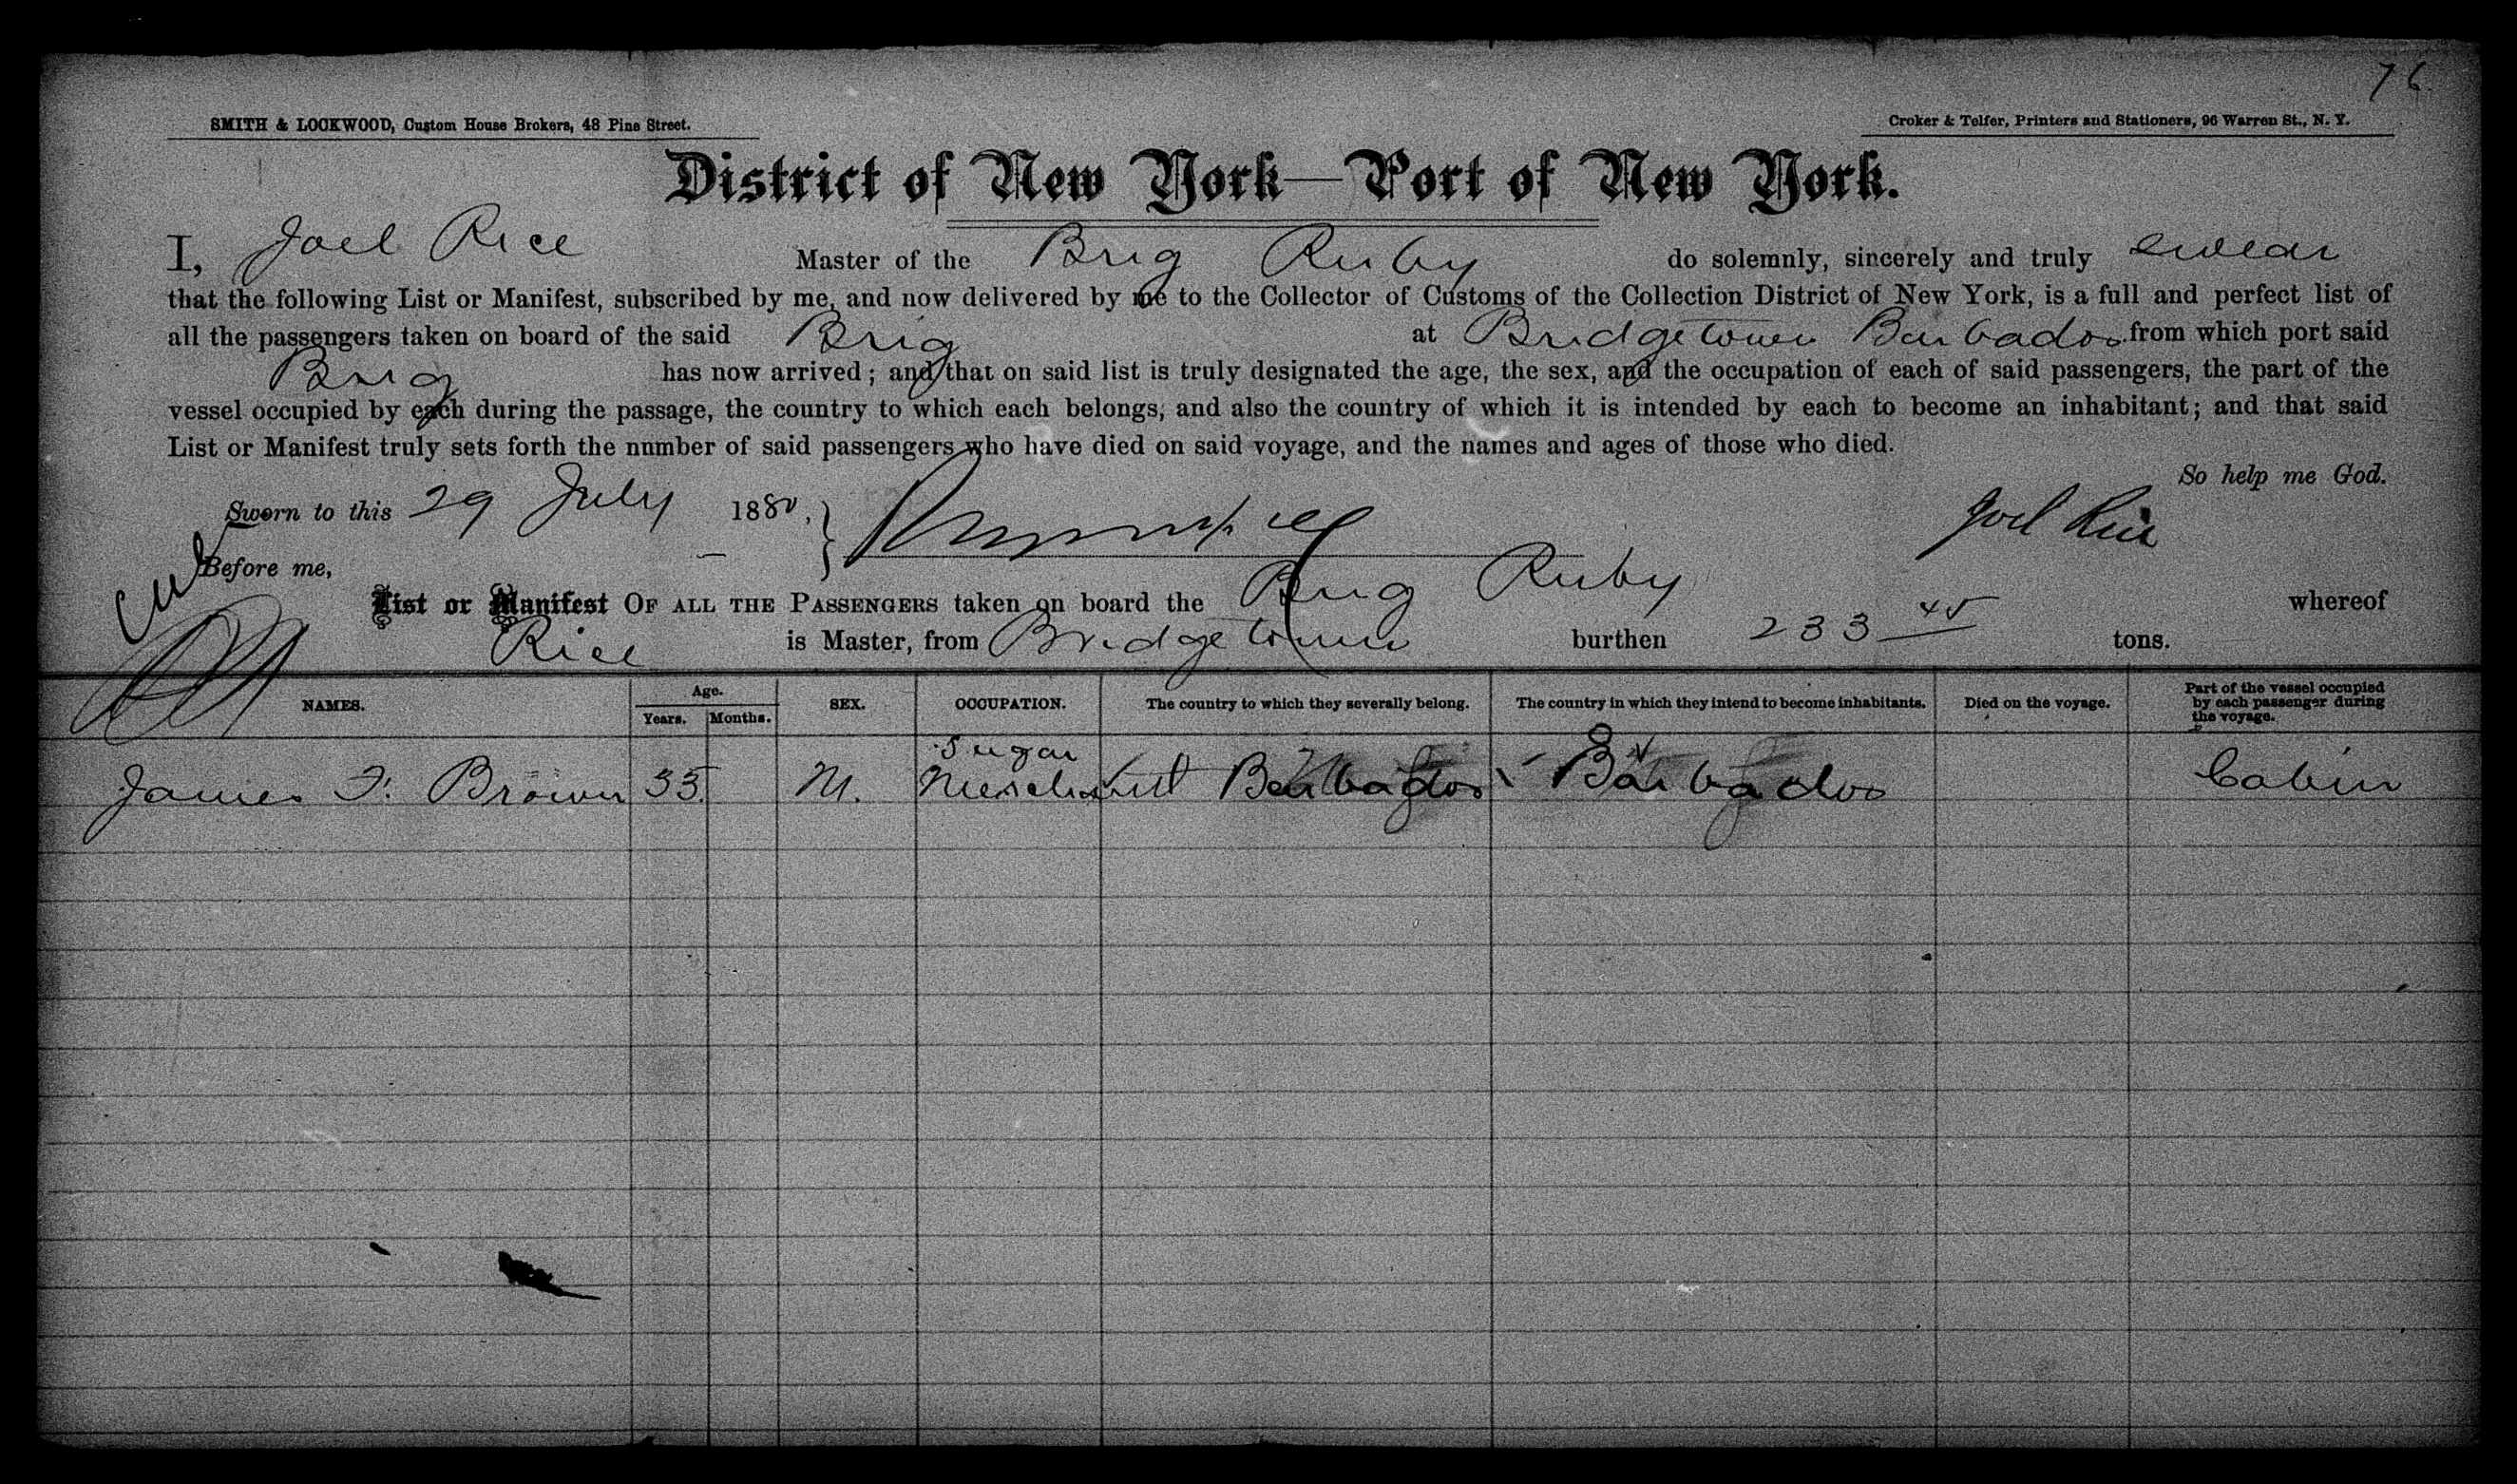 76
SMITH & LOCKWOOD, Custom House Brokers, 48 Pine Street.
Croker & Telfer, Printers and Stationers, 96 Warren St., N. Y.
District of New York—Port of New York.
I, Joel Rice Master of the Brig Ruby do solemnly, sincerely and truly swear
that the following List or Manifest, subscribed by me, and now delivered by me to the Collector of Customs of the Collection District of New York, is a full and perfect list of
all the passengers taken on board of the said Brig at Bridgetown Barbados from which port said
Brig has now arrived; and that on said list is truly designated the age, the sex, and the occupation of each of said passengers, the part of the
vessel occupied by each during the passage, the country to which each belongs, and also the country of which it is intended by each to become an inhabitant; and that said
List or Manifest truly sets forth the number of said passengers who have died on said voyage, and the names and ages of those who died.
So help me God.
Sworn to this 29 July 1880,
Joel Rice
Before me,
List or Manifest OF ALL THE PASSENGERS taken on board the Brig Ruby whereof
Rice is Master, from Bridgetown burthen 233 45 tons.
NAMES. Age. Years. Months. SEX. OCCUPATION. The country to which they severally belong. The country in which they intend to become inhabitants. Died on the voyage. Part of the vessel occupied by each passenger during the voyage.
James F. Brown 35 M. Sugar Merchant Barbados Barbados Cabin